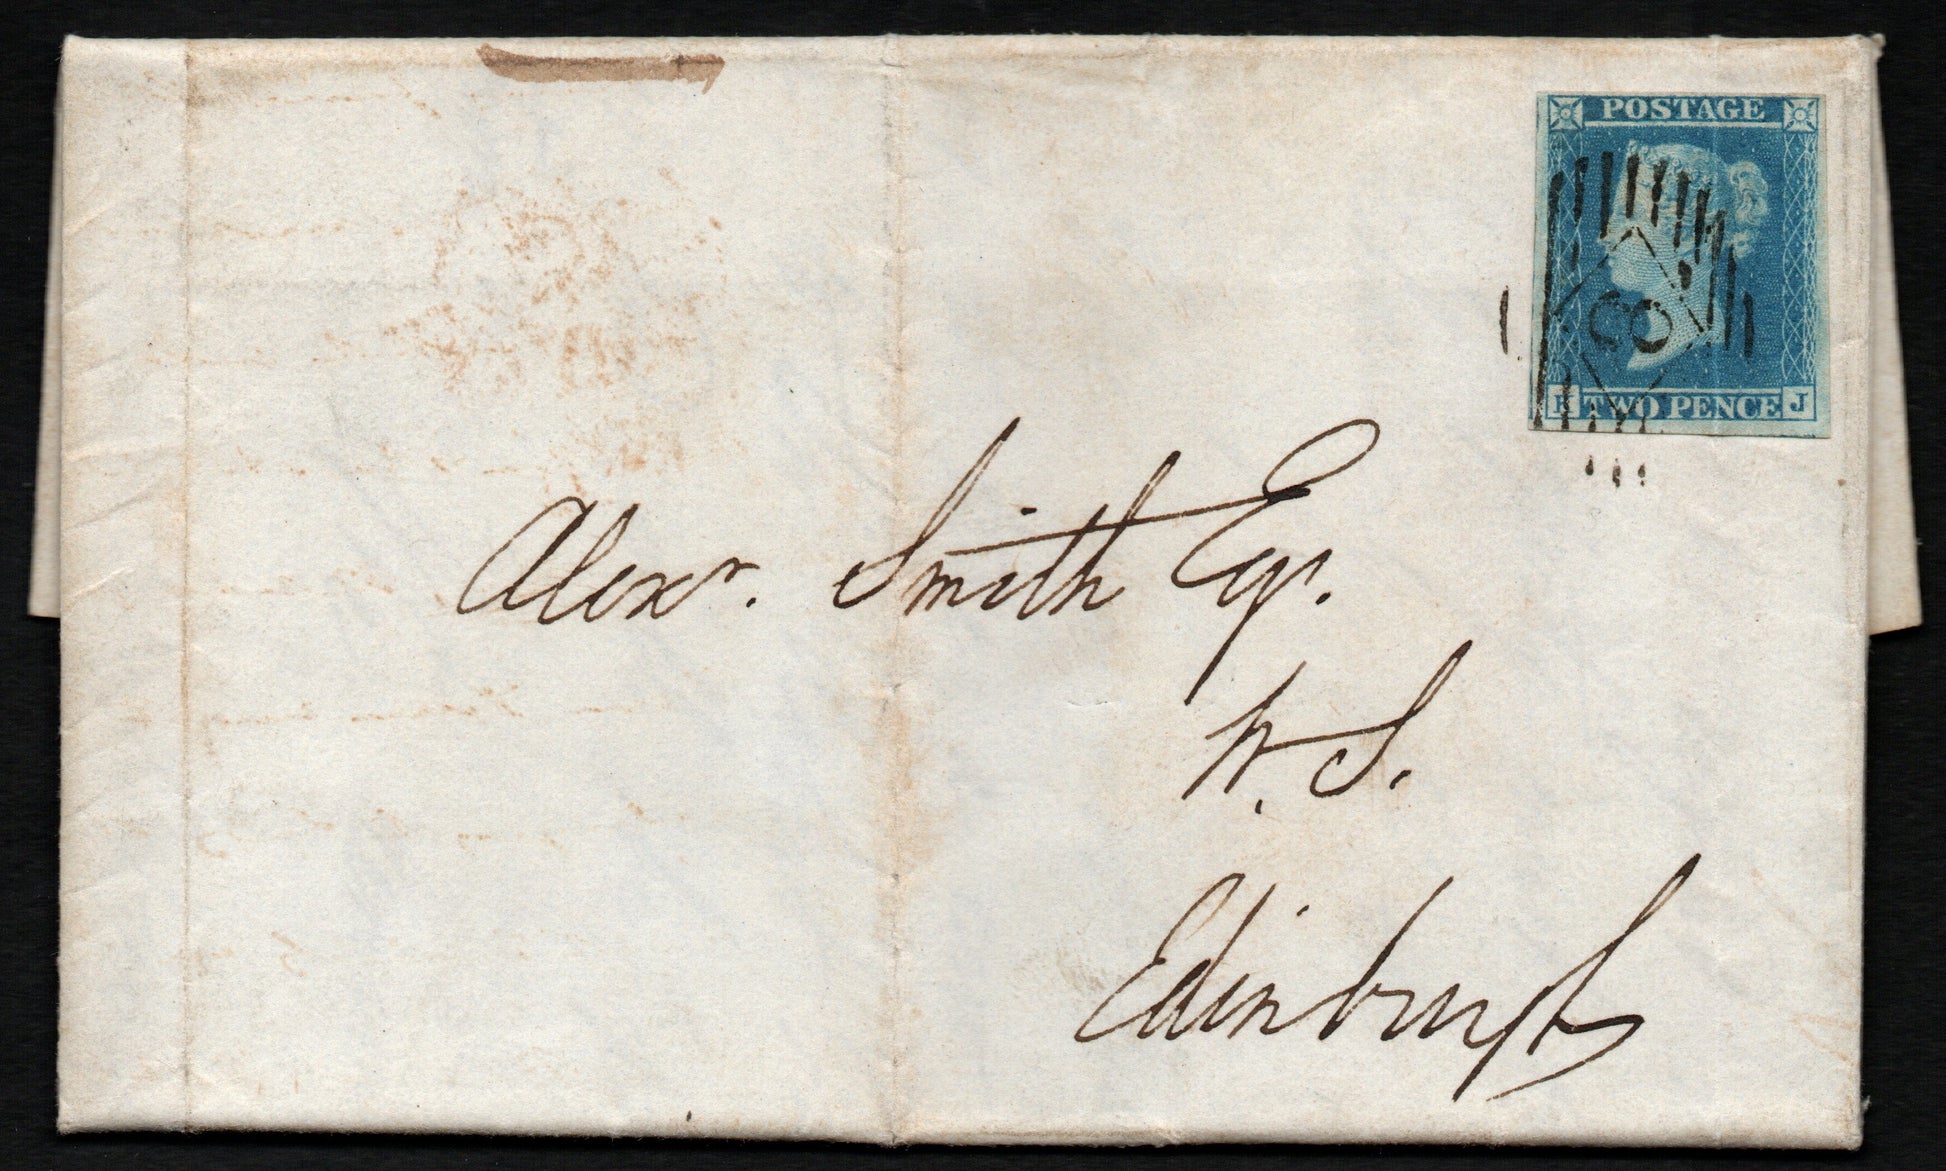 POSTAGE
8
K TWO PENCE J
Alexr. Smith Esqr.
W. S.
Edinburgh